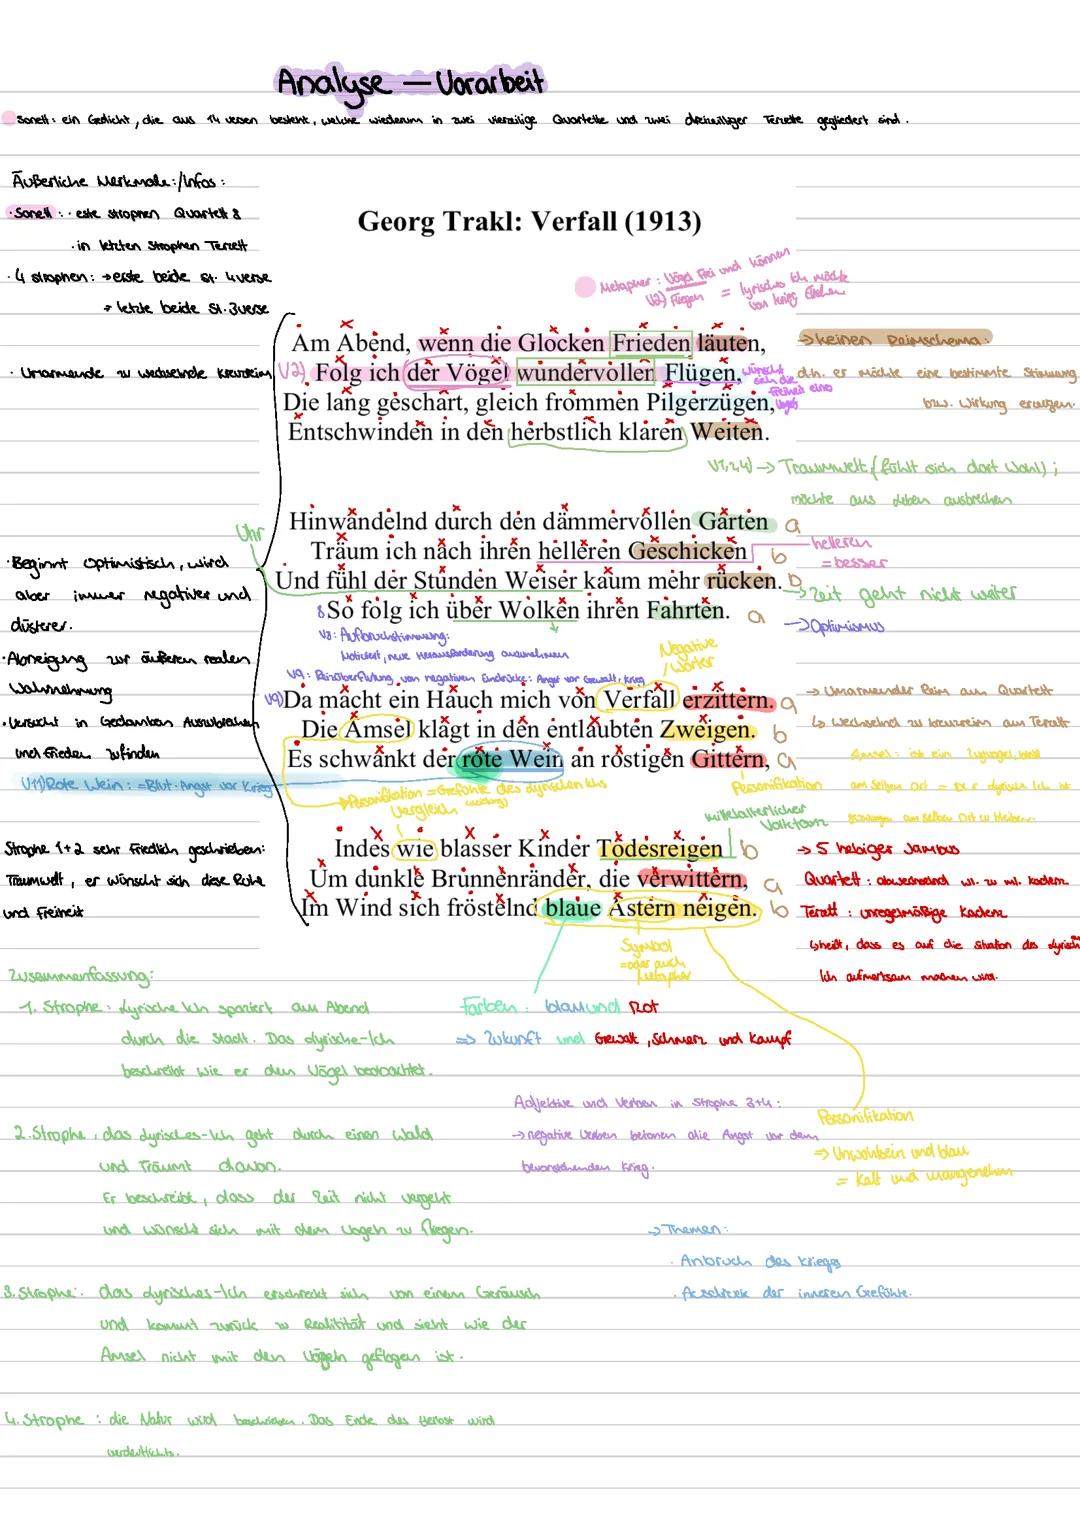 Analyse – Vorarbeit
Sonett: ein Gedicht, die aus 14 versen besteht, welche wiederum in zwei vierzeilige Quartette und zwei dreizeiliger Terzette gegliedert sind.
Äußerliche Merkmale:/Infos:
· Sonett: · este strophen Quartett &
· in letzten Strophen Terzett
· 4 strophen: → erste beide st. 4verse
→ letzte beide St. 3verse
· Umarmende zu wechselnde kreuzreim
Georg Trakl: Verfall (1913)
Metapher: Vögel Frei und können
V2) Fliegen = lyrisches Ich möchte
von krieg fliehen
Am Abend, wenn die Glocken Frieden läuten,
V2) Folg ich der Vögel wundervollen Flügen,
Die lang geschart, gleich frommen Pilgerzügen,
Entschwinden in den herbstlich klaren Weiten.
wünscht
sich die
Freiheit eines
Vogels
→ keinen Reimschema:
d.h. er möchte eine bestimmte Stimmung
bzw. Wirkung erzeugen.
V1,2,4) → Traumwelt (fühlt sich dort wohl);
möchte aus Leben ausbrechen
Uhr
Hinwandelnd durch den dämmervollen Garten a
Träum ich nach ihren helleren Geschicken b
Und fühl der Stunden Weiser kaum mehr rücken. b
8 So folg ich über Wolken ihren Fahrten. a
helleren
= besser
→ Zeit geht nicht weiter
→ Optimismus
· Beginnt optimistisch, wird
aber immer negativer und
düsterer.
· Abneigung zur äußeren realen
Wahrnehmung
· Versucht in Gedanken Auszubrechen
und Frieden zu finden
V11) Rote Wein: = Blut · Angst vor Krieg
V8: Aufbruchstimmung:
Motiviert, neue Herausforderung anzunehmen
V9: Reizüberflutung von negativen Eindrücke: Angst vor Gewalt, Krieg
Negative
Wörter
V9) Da macht ein Hauch mich von Verfall erzittern. a
Die Amsel klagt in den entlaubten Zweigen. b
Es schwankt der rote Wein an rostigen Gittern, a
→ Umarmender Reim am Quartett
↳ wechselnd zu kreuzreim am Terzett
Amsel: ist ein Zugvogel,
am selben Ort = Der lyrische Ich ist
am selben Ort zu bleiben.
Personifikation = Gefühle des lyrischen Ichs
Vergleich
Personifikation
mittelalterlicher
Volkstanz
Strophe 1+2 sehr Friedlich geschrieben:
Traumwelt, er wünscht sich diese Ruhe
und Freiheit
Indes wie blasser Kinder Todesreigen b
Um dunkle Brunnenränder, die verwittern, a
Im Wind sich fröstelnd blaue Astern neigen. b
→ 5 hebiger Jambus
Quartett: abwechselnd wl. zu ml. kadenz
Terzett: unregelmäßige Kadenz
↳ heißt, dass es auf die situation des lyrisch
Ich aufmerksam machen wird.
Symbol
= oder auch
Metapher
Zusammenfassung:
1. Strophe: Lyrische Ich spaziert am Abend
durch die Stadt. Das lyrische-Ich
beschreibt wie er den Vögel beobachtet.
Farben: blau und Rot
⇒ Zukunft und Gewalt, Schmerz und Kampf
Adjektive und Verben in Strophe 3+4:
→ negative Verben betonen die Angst vor dem
bevorstehenden Krieg.
Personifikation
⇒ Unwohlsein und blau
= Kalt und unangenehm
2. Strophe, das lyrisches-Ich geht durch einen Wald
und Träumt davon.
Er beschreibt, dass der Zeit nicht vergeht
und wünscht sich mit dem Vögeln zu fliegen.
→ Themen:
· Anbruch des Krieges
· der inneren Gefühle.
3. Strophe: das Lyrisches-Ich erschreckt sich von einem Geräusch
und kommt zurück zu Realitität und sieht wie der
Amsel nicht mit den Vögeln geflogen ist.
4. Strophe: die Natur wird beschrieben. Das Ende des Herbst wird
verdeutlicht.